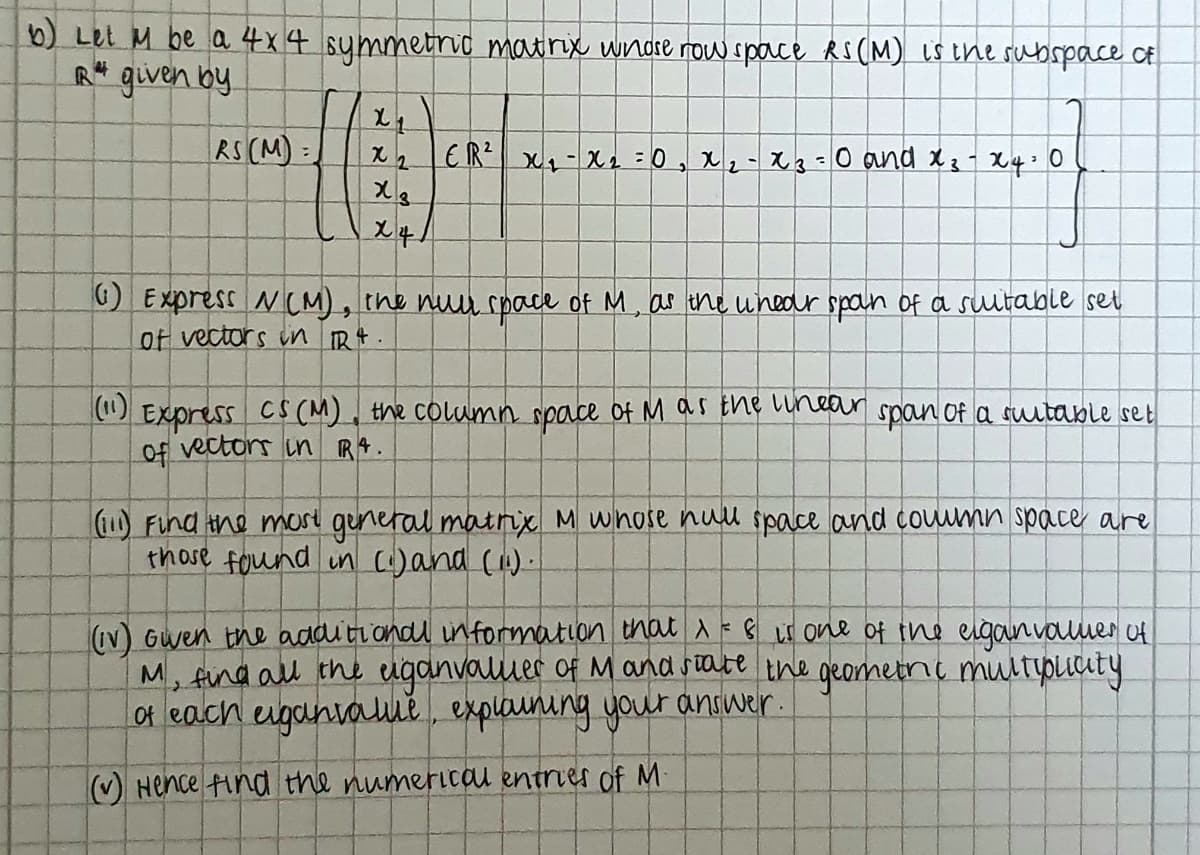 b) Let M be a 4x4 symmetric matrix whose row space RS(M) is the subspace of
R⁴ given by
RS(M) = { (x₁ x₂ x₃ x₄) ∈ R² | x₁ - x₂ = 0, x₂ - x₃ = 0 and x₃ - x₄ = 0 }.
(i) Express N(M), the null space of M, as the linear span of a suitable set
of vectors in R⁴.
(ii) Express CS(M), the column space of M as the linear span of a suitable set
of vectors in R⁴.
(iii) Find the most general matrix M whose null space and column space are
those found in (i) and (ii).
(iv) Given the additional information that λ = 8 is one of the eiganvalues of
M, find all the eiganvalues of M and state the geometric multiplicity
of each eiganvalue, explaining your answer.
(v) Hence find the numerical entries of M.